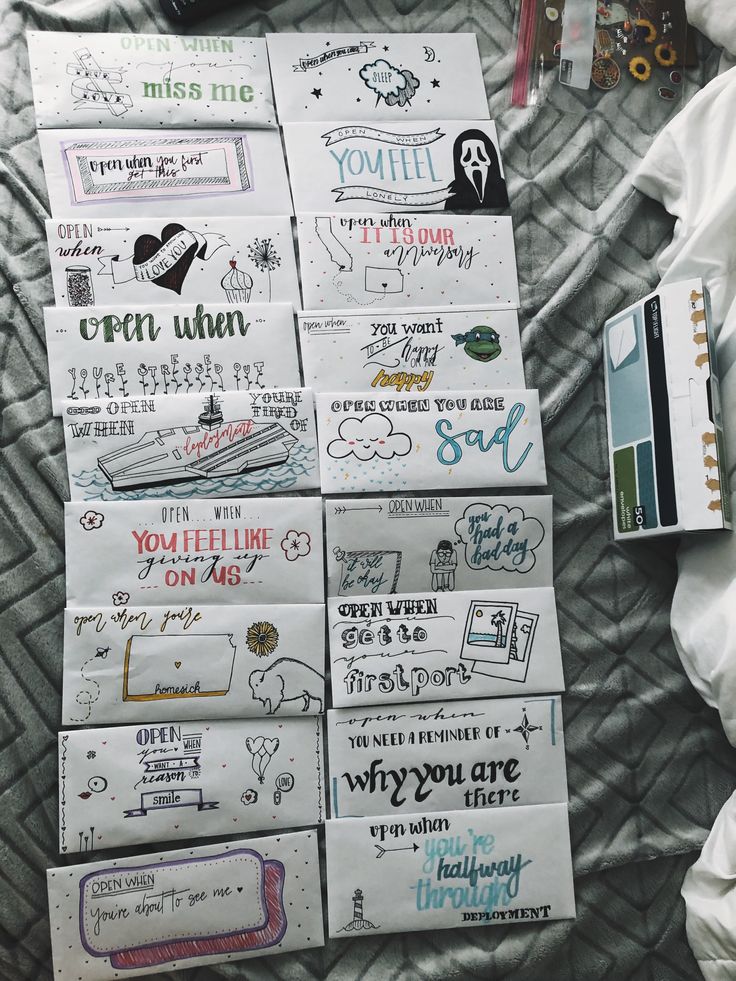 OPEN WHEN
you
miss me
open when you can't
SLEEP
open when you first
get this
OPEN WHEN
YOU FEEL
LONELY
OPEN
when
I LOVE YOU
open when
IT IS OUR
anniversary
open when
YOU'RE STRESSED OUT
open when
you want
TO BE
happy
OR ARE
happy
OPEN
WHEN
YOU'RE
TIRED
OF
deployment
OPEN WHEN YOU ARE
sad
... OPEN .... WHEN ...
YOU FEEL LIKE
giving up
ON US
OPEN WHEN
you
had a
bad day
it will
be okay
open when you're
homesick
OPEN WHEN
you
get to
your
first port
OPEN
you WHEN
WANT A
reason
TO
smile
LOVE
open when
YOU NEED A REMINDER OF
why you are
there
OPEN WHEN
You're about to see me
open when
you're
halfway
through
DEPLOYMENT
50
white
envelopes